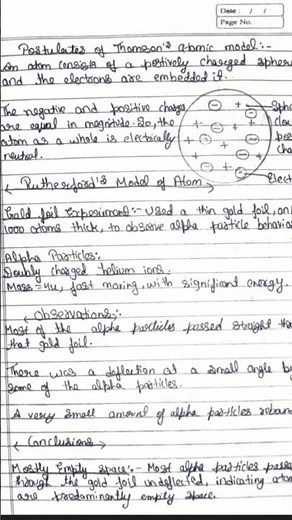 Date : / /
Page No.
Postulates of Thomson's atomic model:-
An atom consists of a positively charged sphere
and the electrons are embedded it.
The negative and positive charges
are equal in magnitude. So, the
atom as a whole is electrically
neutral.
Sphe
clou
pos
cha
Elect
Rutherford's Model of Atom
Gold foil Experiment:- Used a thin gold foil, on
1000 atoms thick, to observe alpha particle behavio
Alpha Particles:
Doubly charged helium ions.
Mass = 4u, fast moving, with significant energy.
Observations:-
Most of the alpha particles passed straight thr
that gold foil.
There was a deflection at a small angle by
some of the alpha particles.
A very small amount of alpha particles reboun
Conclusions
Mostly Empty space:- Most alpha particles passe
through the gold foil undeflected, indicating atom
are predominently empty space.